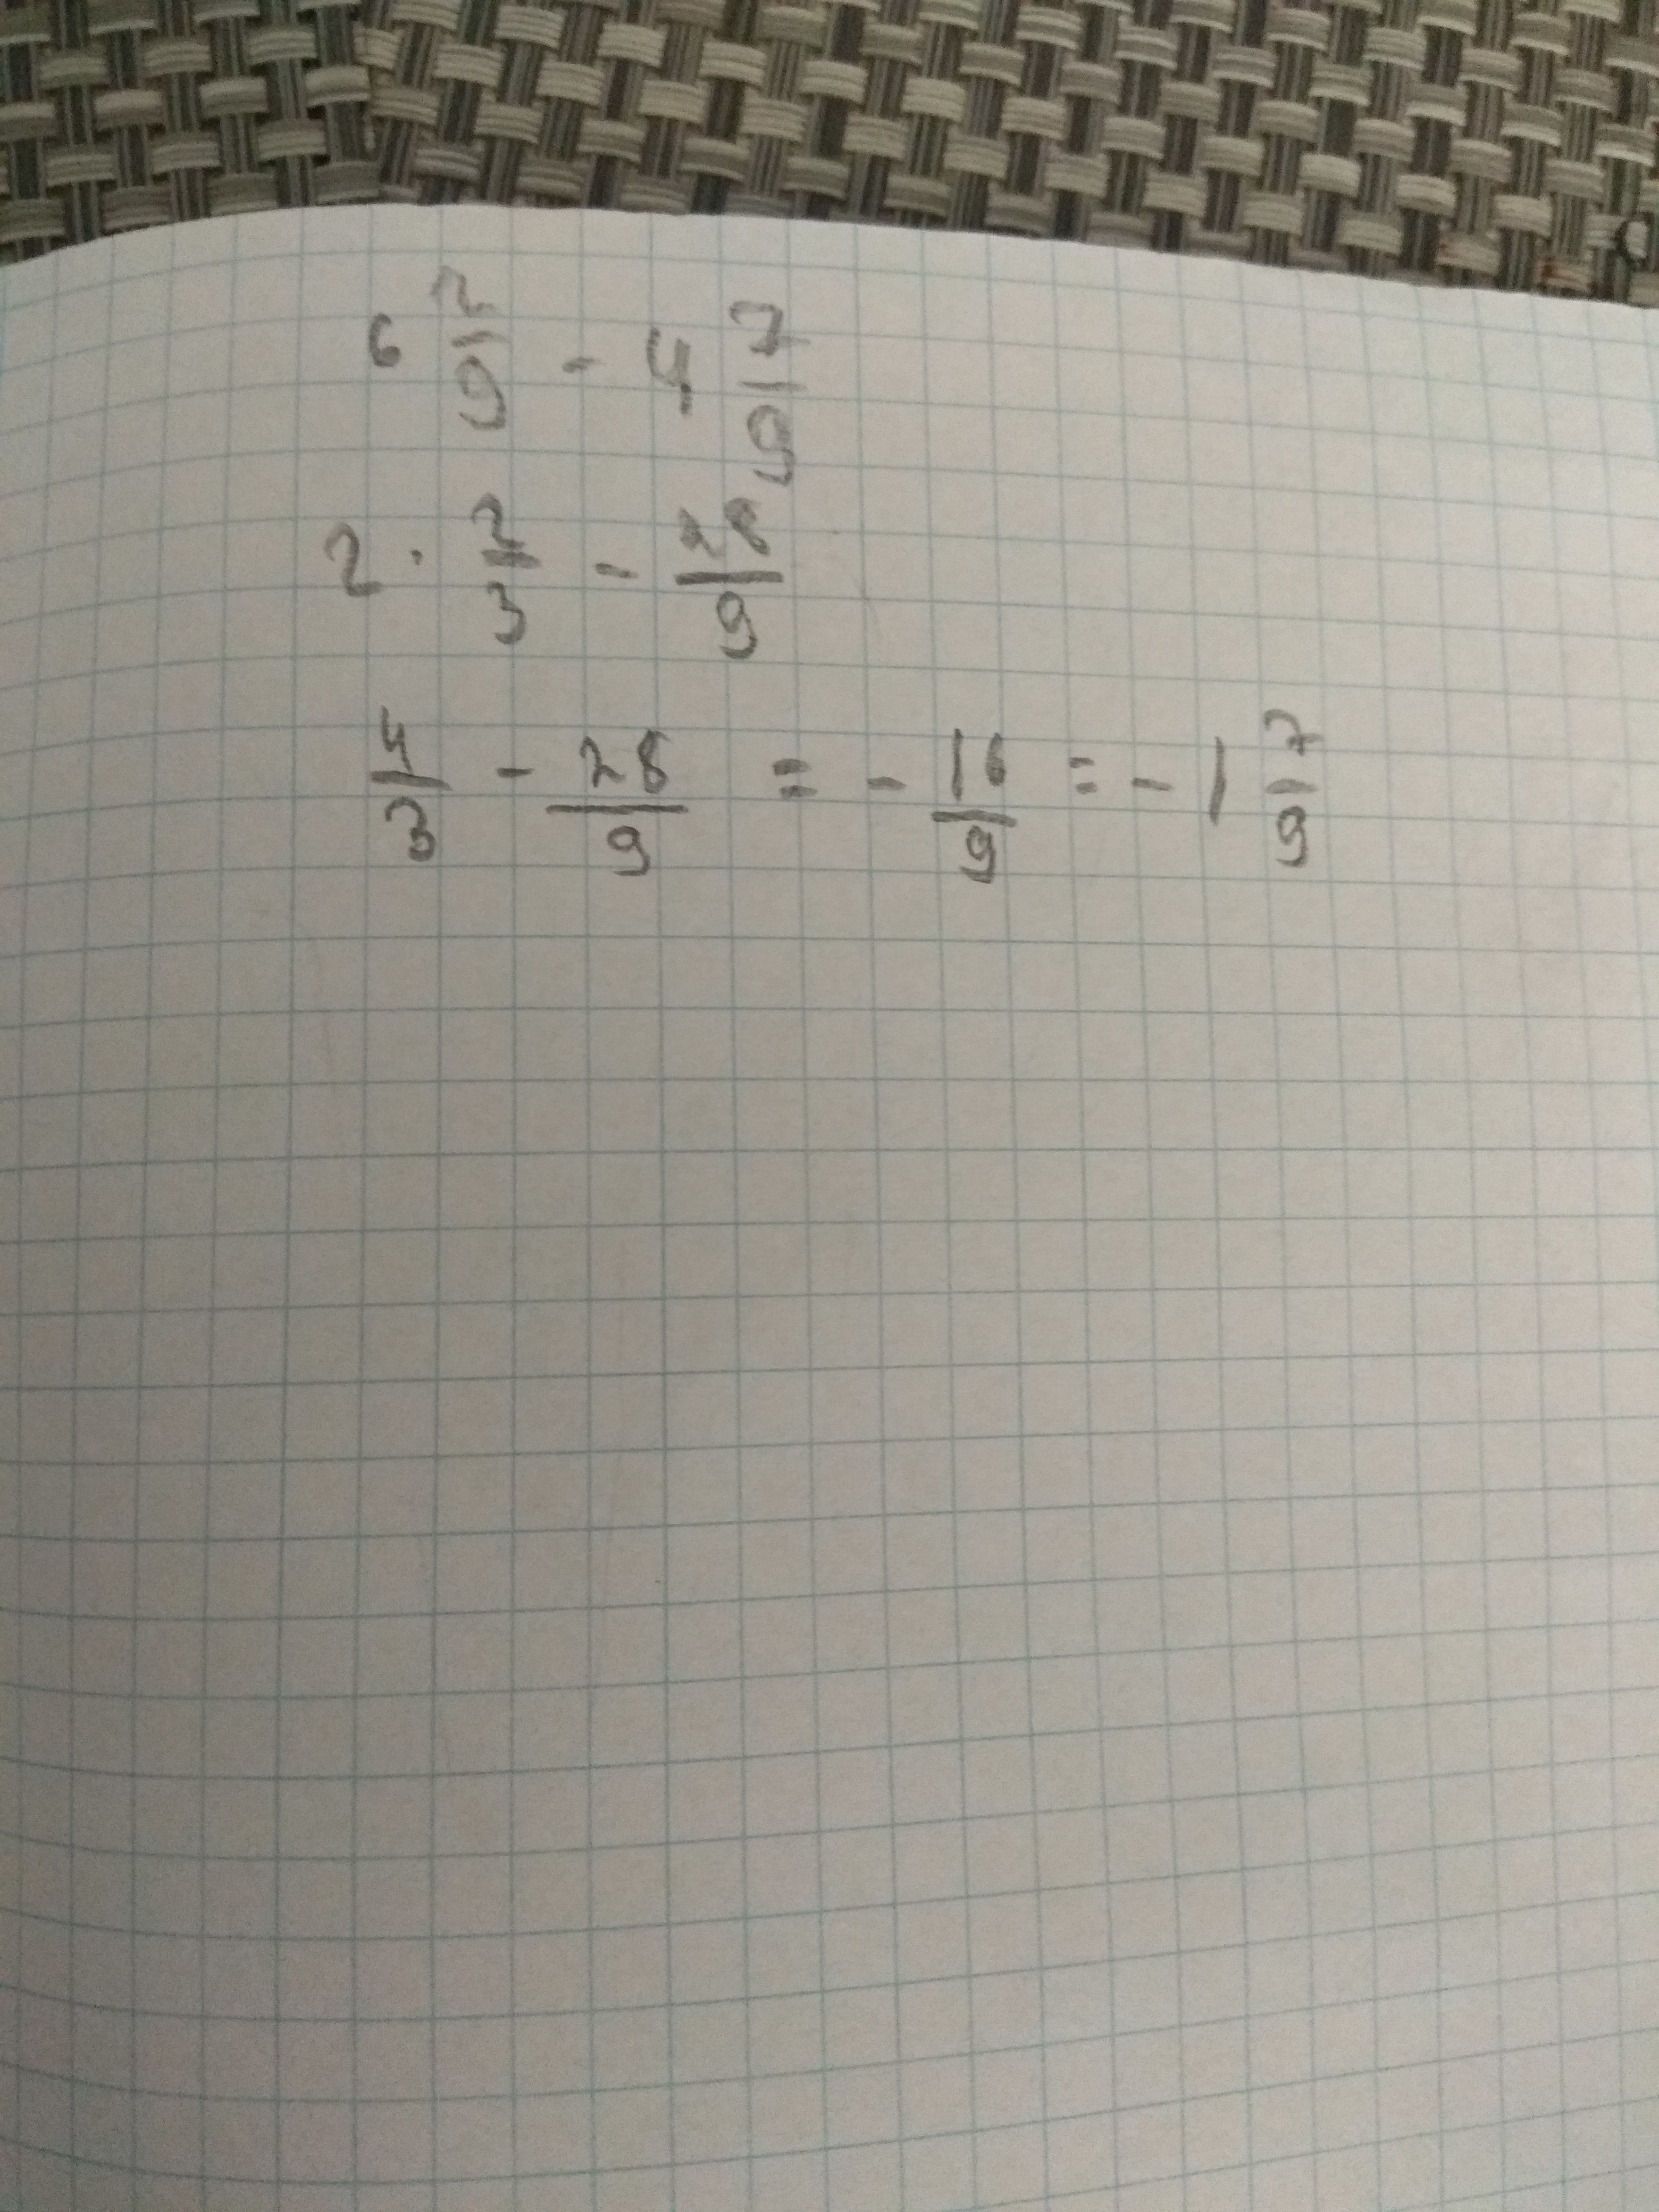 6 2/9 - 4 7/9
2 · 2/3 - 28/9
4/3 - 28/9 = - 16/9 = - 1 7/9